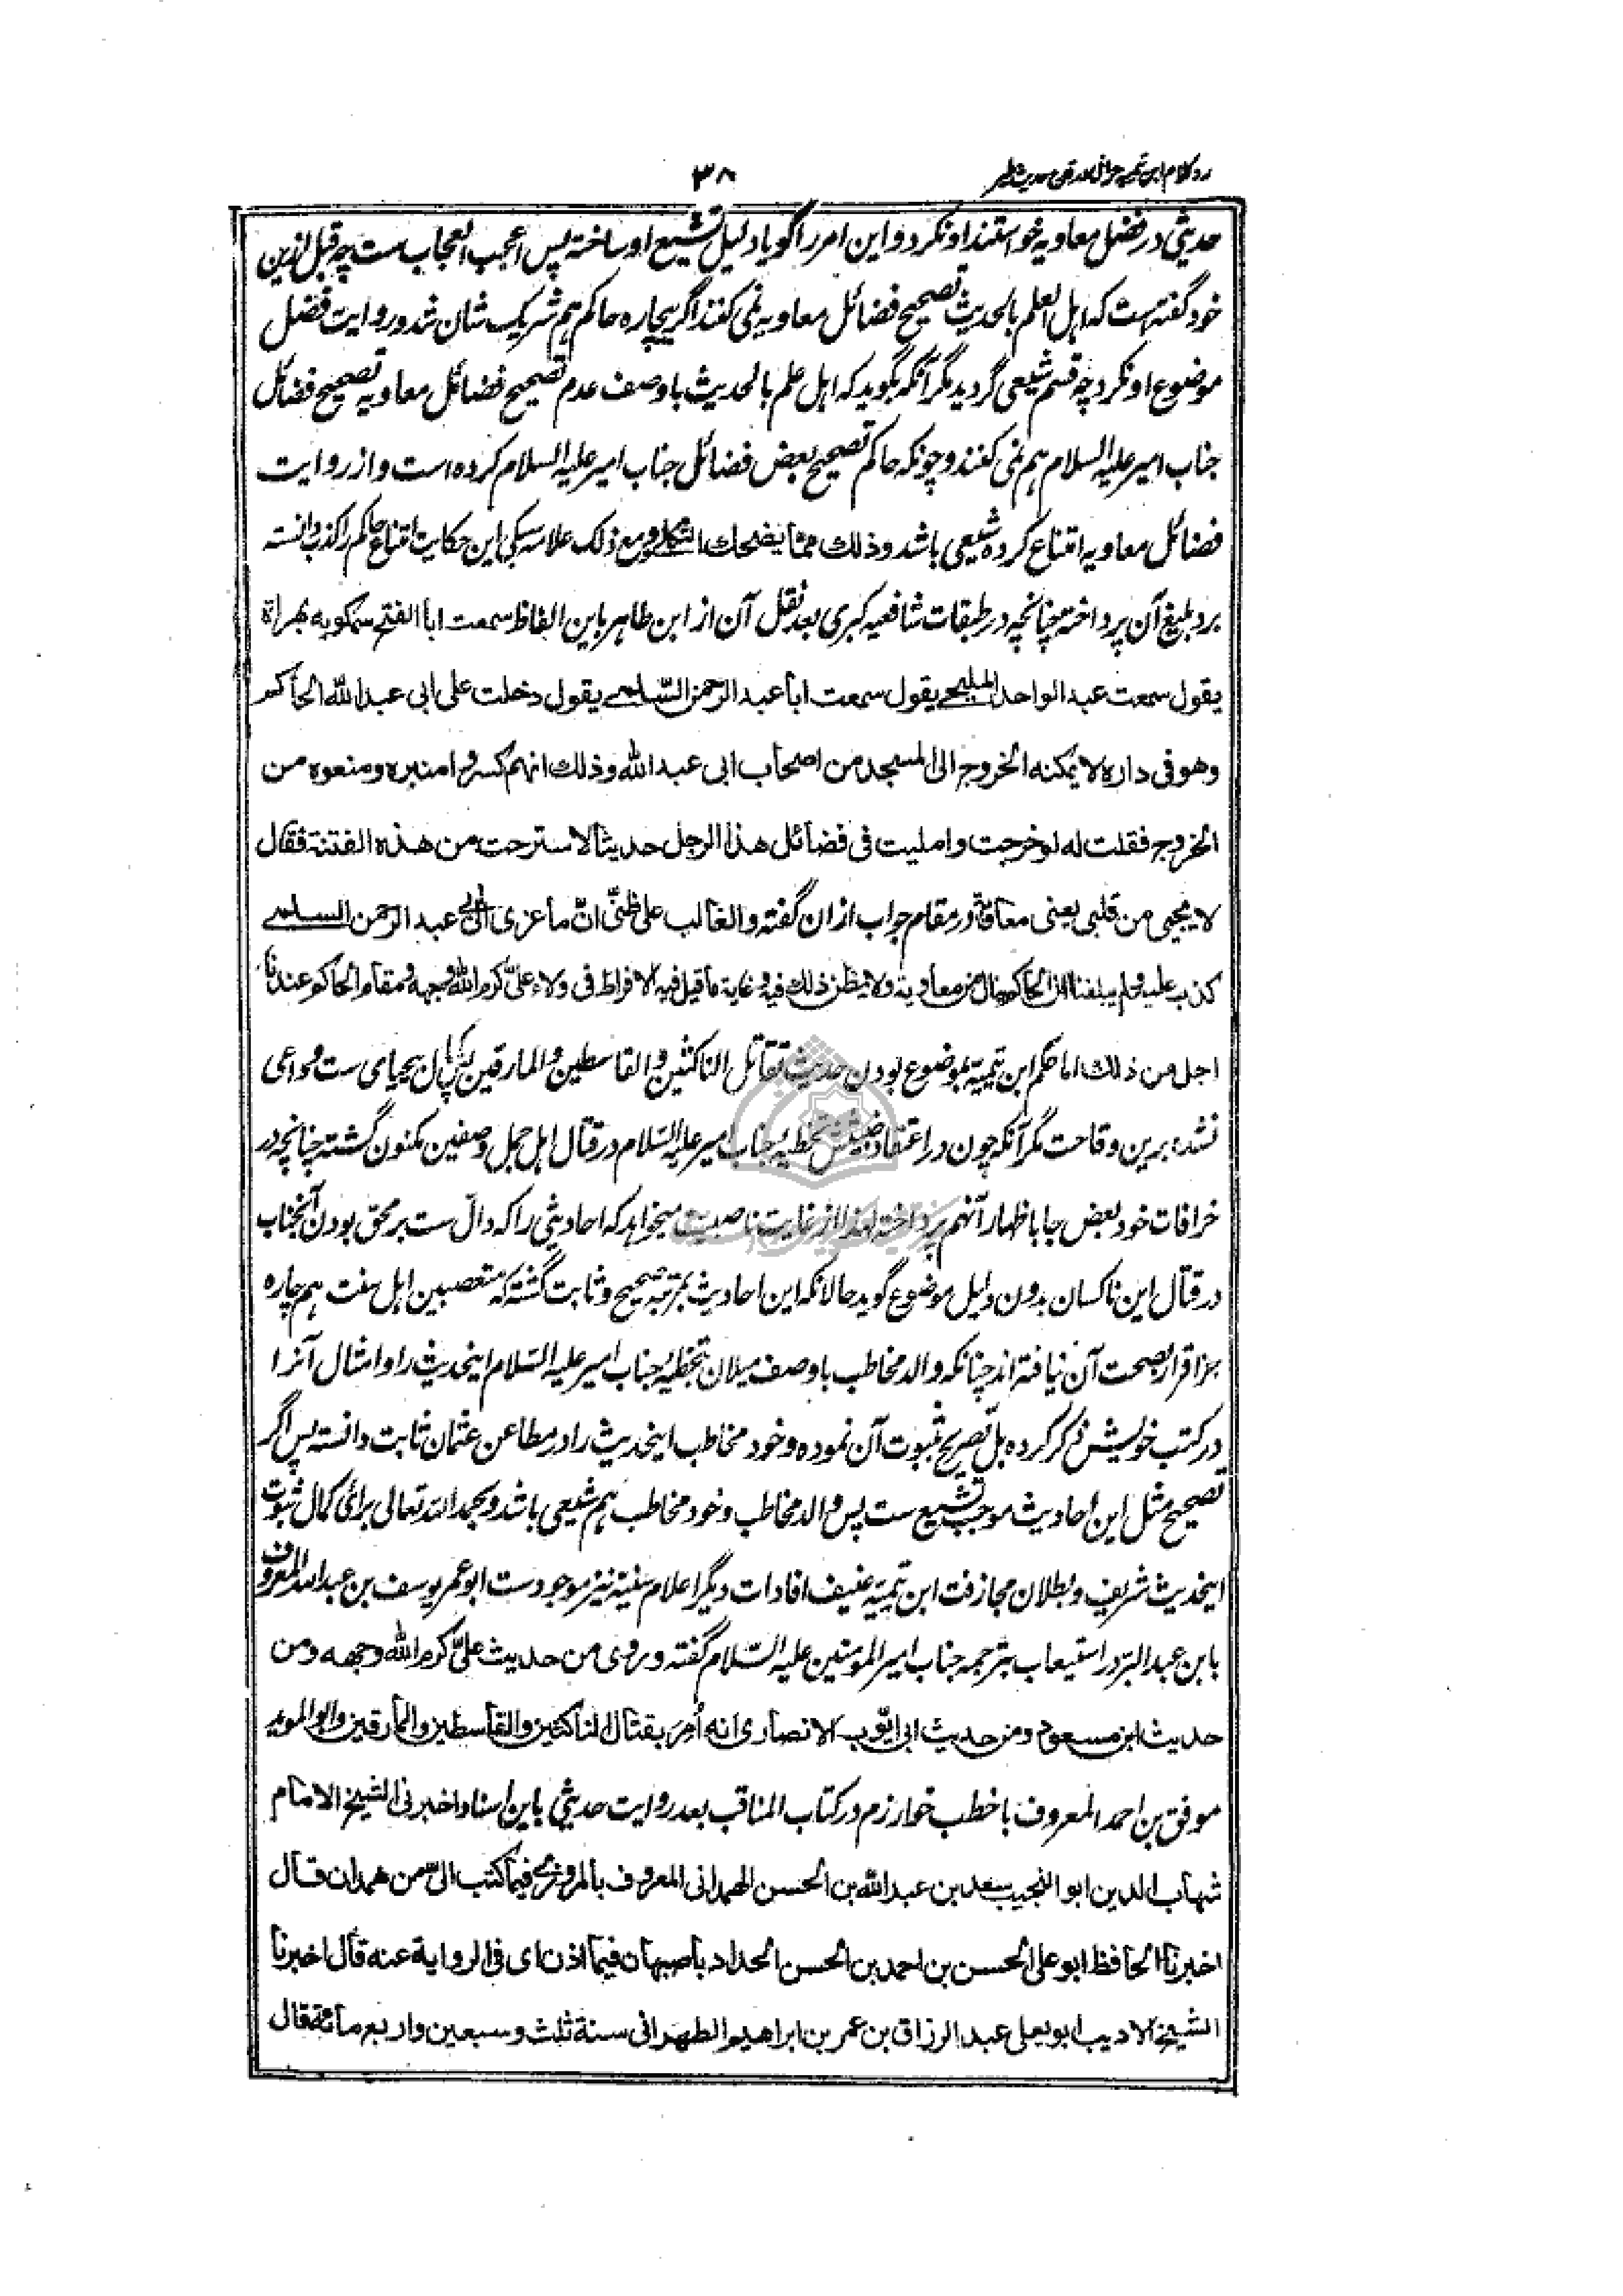 رد کلام ابن تیمیه
۳۸
حدیثی در فضل معاویه خواستند او نکرد و این امر را گویا دلیل تشیع او ساخته پس اعجب العجاب ست چه قبل ازین
خود گفته است که اهل العلم بالحدیث تصحیح فضائل معاویه نمی کنند اگر بیچاره حاکم هم شریک شان شد و روایت فضل
موضوع او نکرد چه قسم شیعی گردید مگر آنکه بگوید که اهل علم بالحدیث با وصف عدم تصحیح فضائل معاویه تصحیح فضائل
جناب امیر علیه السلام هم نمی کنند و چونکه حاکم تصحیح بعض فضائل جناب امیر علیه السلام کرده است و از روایت
فضائل معاویه امتناع کرده شیعی باشد و ذلك مما یضحك الثکلی و مع ذلک علامه سبکی این حکایت امتناع حاکم را کذب دانسته
برد بلیغ آن پرداخته چنانچه در طبقات شافعیه کبری بعد نقل آن از ابن طاهر باین الفاظ سمعت ابا الفتح سمکویه بهراة
یقول سمعت عبد الواحد الملیحی یقول سمعت ابا عبد الرحمن السلمی یقول دخلت علی ابی عبد الله الحاکم
وهو فی داره لا یمکنه الخروج الی المسجد من اصحاب ابی عبد الله وذلك انهم کسروا منبره ومنعوه من
الخروج فقلت له لو خرجت واملیت فی فضائل هذا الرجل حدیثا لاسترحت من هذه الفتنة فقال
لا یجیی من قلبی یعنی معاویة در مقام جواب ازان گفته و الغالب علی ظنی ان ما عزی الی ابی عبد الرحمن السلمی
کذب علیه ولم یبلغنا ان الحاکم ینال من معاویة ولا یظن ذلك فیه وغایة ما قیل فیه الافراط فی ولاء علی کرم الله وجهه ومقام الحاکم عندنا
اجل من ذلك اما حکم ابن تیمیه بموضوع بودن حدیث تقاتل الناکثین والقاسطین والمارقین پس کمال بیحیای ست و داعی
نشده برین وقاحت مگر آنکه چون در اعتقاد خبیثش تخطیه جناب امیر علیه السلام در قتال اهل جمل و صفین مکنون گشته چنانچه در
خرافات خود بعض جا باظهار آنهم پرداخته لهذا از غایت ناصبیت میخواهد که احادیثی را که دال ست بر محق بودن آنجناب
در قتال این ناکسان بدون دلیل موضوع گوید حالانکه این احادیث بمرتبه صحیح و ثابت گشته که متعصبین اهل سنت هم چاره
بجز اقرار بصحت آن نیافته اند چنانکه والد مخاطب با وصف میلان بتخطیه جناب امیر علیه السلام اینحدیث را و امثال آنرا
در کتب خویش ذکر کرده بل تصریح بثبوت آن نموده و خود مخاطب اینحدیث را در مطاعن عثمان ثابت دانسته پس اگر
تصحیح مثل این احادیث موجب تشیع ست پس والد مخاطب و خود مخاطب هم شیعی باشد و بحمد الله تعالی برای کمال ثبوت
اینحدیث شریف و بطلان مجازفت ابن تیمیه عنیف افادات دیگر اعلام سنیه نیز موجود ست ابو عمر یوسف بن عبد الله المعروف
بابن عبد البر در استیعاب بترجمه جناب امیر المومنین علیه السلام گفته وروی من حدیث علی کرم الله وجهه ومن
حدیث ابن مسعود ومن حدیث ابی ایوب الانصاری انه اُمِرَ بقتال الناکثین والقاسطین والمارقین وابو المؤید
موفق بن احمد المعروف باخطب خوارزم در کتاب المناقب بعد روایت حدیثی باین اسناد اخبرنی الشیخ الامام
شهاب الدین ابو النجیب سعد بن عبد الله بن الحسن الهمدانی المعروف بالمروزی فیما کتب الی من همدان قال
اخبرنا الحافظ ابو علی الحسن بن احمد بن الحسن الحداد باصبهان فیما اذن لی فی الروایة عنه قال اخبرنا
الشیخ الادیب ابو یعلی عبد الرزاق بن عمر بن ابراهیم الطهرانی سنة ثلث وسبعین واربع مائة قال